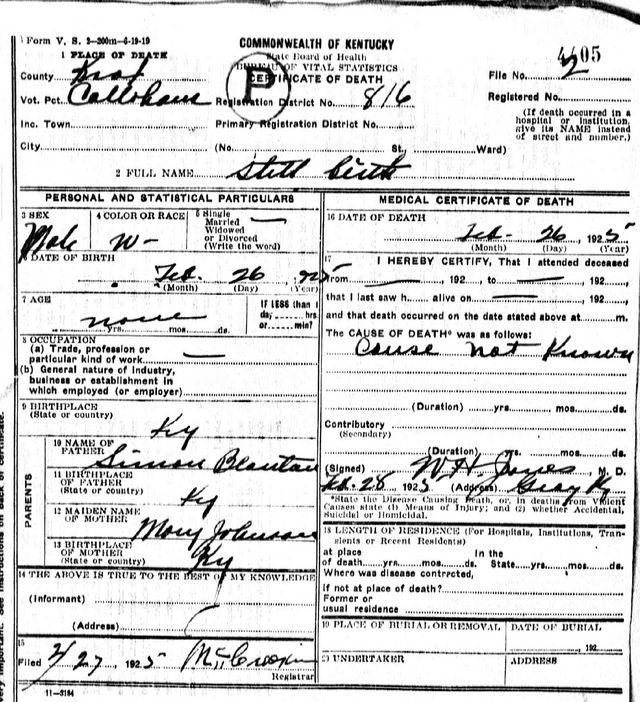 Form V. S. 2-300m-6-19-19
COMMONWEALTH OF KENTUCKY
State Board of Health
BUREAU OF VITAL STATISTICS
CERTIFICATE OF DEATH
P
4405
1 PLACE OF DEATH
County Knox
File No. 2
Vot. Pct. Callihan
Registration District No. 816
Registered No.
(If death occurred in a hospital or institution, give its NAME instead of street and number.)
Inc. Town
Primary Registration District No.
City (No. St., Ward)
2 FULL NAME Still birth
PERSONAL AND STATISTICAL PARTICULARS
3 SEX
Male
4 COLOR OR RACE
W-
5 Single
Married
Widowed
or Divorced
(Write the word)
DATE OF BIRTH
Feb. 26 1925
(Month) (Day) (Year)
7 AGE
none
yrs. mos. ds.
IF LESS than 1
da, hrs.
or min?
8 OCCUPATION
(a) Trade, profession or
particular kind of work
(b) General nature of industry,
business or establishment in
which employed (or employer)
9 BIRTHPLACE
(State or country)
Ky
PARENTS
10 NAME OF
FATHER
Simon Blanton
11 BIRTHPLACE
OF FATHER
(State or country)
Ky
12 MAIDEN NAME
OF MOTHER
Mary Johnson
13 BIRTHPLACE
OF MOTHER
(State or country)
Ky
14 THE ABOVE IS TRUE TO THE BEST OF MY KNOWLEDGE
(Informant)
(Address)
15
Filed 2/27, 1925
Registrar
11-3184
MEDICAL CERTIFICATE OF DEATH
16 DATE OF DEATH
Feb- 26, 1925
(Month) (Day) (Year)
17 I HEREBY CERTIFY, That I attended deceased
from , 192 , to , 192 ,
that I last saw h alive on , 192 ,
and that death occurred on the date stated above at m.
The CAUSE OF DEATH* was as follows:
Cause not Known
(Duration) yrs. mos. ds.
Contributory
(Secondary)
(Duration) yrs. mos. ds.
(Signed) W H Jones, M. D.
Feb. 28 1925 (Address) Gray Ky
*State the Disease Causing Death, or, in deaths from Violent
Causes state (1) Means of Injury; and (2) whether Accidental,
Suicidal or Homicidal.
18 LENGTH OF RESIDENCE (For Hospitals, Institutions, Transients or Recent Residents)
at place In the
of death yrs. mos. ds. State yrs. mos. ds.
Where was disease contrected,
if not at place of death?
Former or
usual residence
19 PLACE OF BURIAL OR REMOVAL
DATE OF BURIAL
, 192
20 UNDERTAKER
ADDRESS